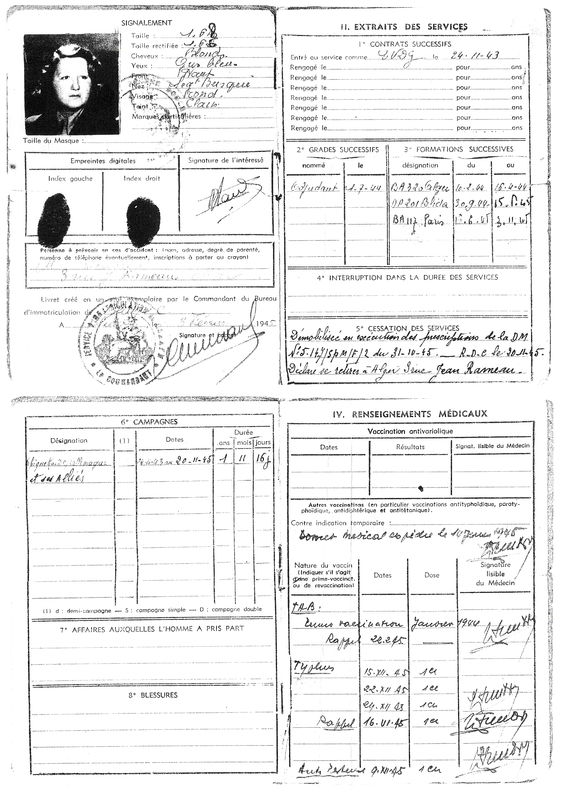 SIGNALEMENT
Taille : 1.68
Taille rectifiée : 1.68
Cheveux : Blond
Yeux : Gris bleu
Front :
Nez : Busqué
Visage : Rond
Teint : Clair
Marques particulières :
Taille du Masque :
Empreintes digitales
Signature de l'intéressé
Index gauche
Index droit
Personne à prévenir en cas d'accident : (nom, adresse, degré de parenté,
numéro de téléphone éventuellement, inscriptions à porter au crayon)
3 rue J. Rameau
Livret créé en exemplaire par le Commandant du Bureau
d'immatriculation de
A
Signature et
SERVICE
LE COMMANDANT
II. EXTRAITS DES SERVICES
1° CONTRATS SUCCESSIFS
Entré au service comme EVDG le 24-11-43
Rengagé le pour ans
Rengagé le pour ans
Rengagé le pour ans
Rengagé le pour ans
Rengagé le pour ans
Rengagé le pour ans
2° GRADES SUCCESSIFS
3° FORMATIONS SUCCESSIVES
nommé
le
désignation
du
au
Adjudant 1.7.44
BA 320 Alger
15.4.44
Blida 30.9.44 15.5.45
BA 117 Paris 3.11.45
4° INTERRUPTION DANS LA DURÉE DES SERVICES
5° CESSATION DES SERVICES
Démobilisée en exécution des prescriptions de la DM
du 31-10-45. R.D.C le 20-11-45.
Déclare se retirer à Alger 3 rue Jean Rameau.
6° CAMPAGNES
Désignation
(1)
Dates
Durée
ans
mois
jours
et ses Alliés
au 20-11-45
1 11 16j
(1) d : demi-campagne — S : campagne simple — D : campagne double
7° AFFAIRES AUXQUELLES L'HOMME A PRIS PART
8° BLESSURES
IV. RENSEIGNEMENTS MÉDICAUX
Vaccination antivariolique
Dates
Résultats
Signat. lisible du Médecin
Autres vaccinations (en particulier vaccinations antityphoïdique, paraty-
phoïdique, antidiphtérique et antitétanique).
Contre indication temporaire :
médical expédié le
Nature du vaccin
(Indiquer s'il s'agit
d'une prime-vaccinat.
ou de revaccination)
Dates
Dose
Signature
lisible
du Médecin
TAB :
vaccination Janvier 1944
Rappel 22.2.45
Typhus 15-XII-45 1cc
22-XII-45 1cc
1cc
Rappel 16-VI-45 1cc
9-XII-45 1cc